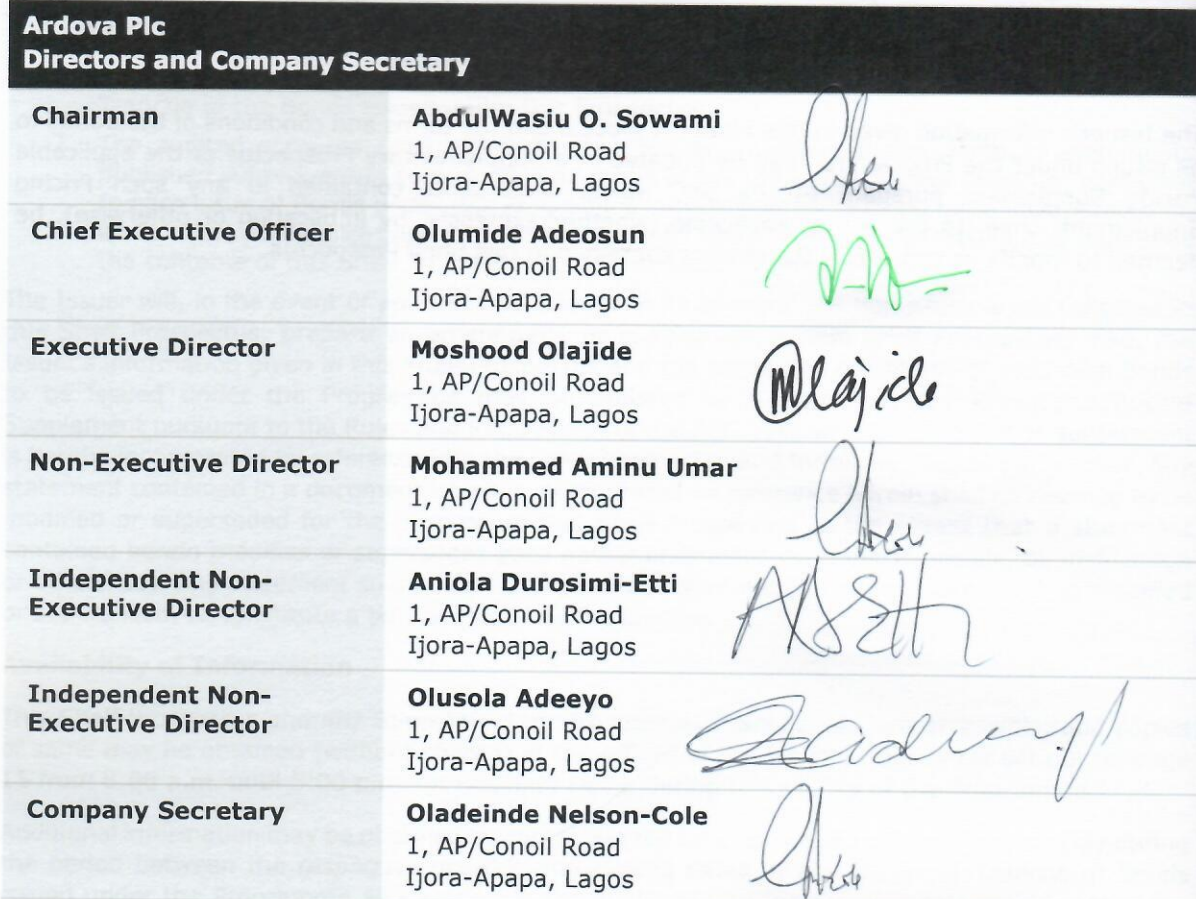 Ardova Plc
Directors and Company Secretary
Chairman
AbdulWasiu O. Sowami
1, AP/Conoil Road
Ijora-Apapa, Lagos
Chief Executive Officer
Olumide Adeosun
1, AP/Conoil Road
Ijora-Apapa, Lagos
Executive Director
Moshood Olajide
1, AP/Conoil Road
Ijora-Apapa, Lagos
Non-Executive Director
Mohammed Aminu Umar
1, AP/Conoil Road
Ijora-Apapa, Lagos
Independent Non-
Executive Director
Aniola Durosimi-Etti
1, AP/Conoil Road
Ijora-Apapa, Lagos
Independent Non-
Executive Director
Olusola Adeeyo
1, AP/Conoil Road
Ijora-Apapa, Lagos
Company Secretary
Oladeinde Nelson-Cole
1, AP/Conoil Road
Ijora-Apapa, Lagos